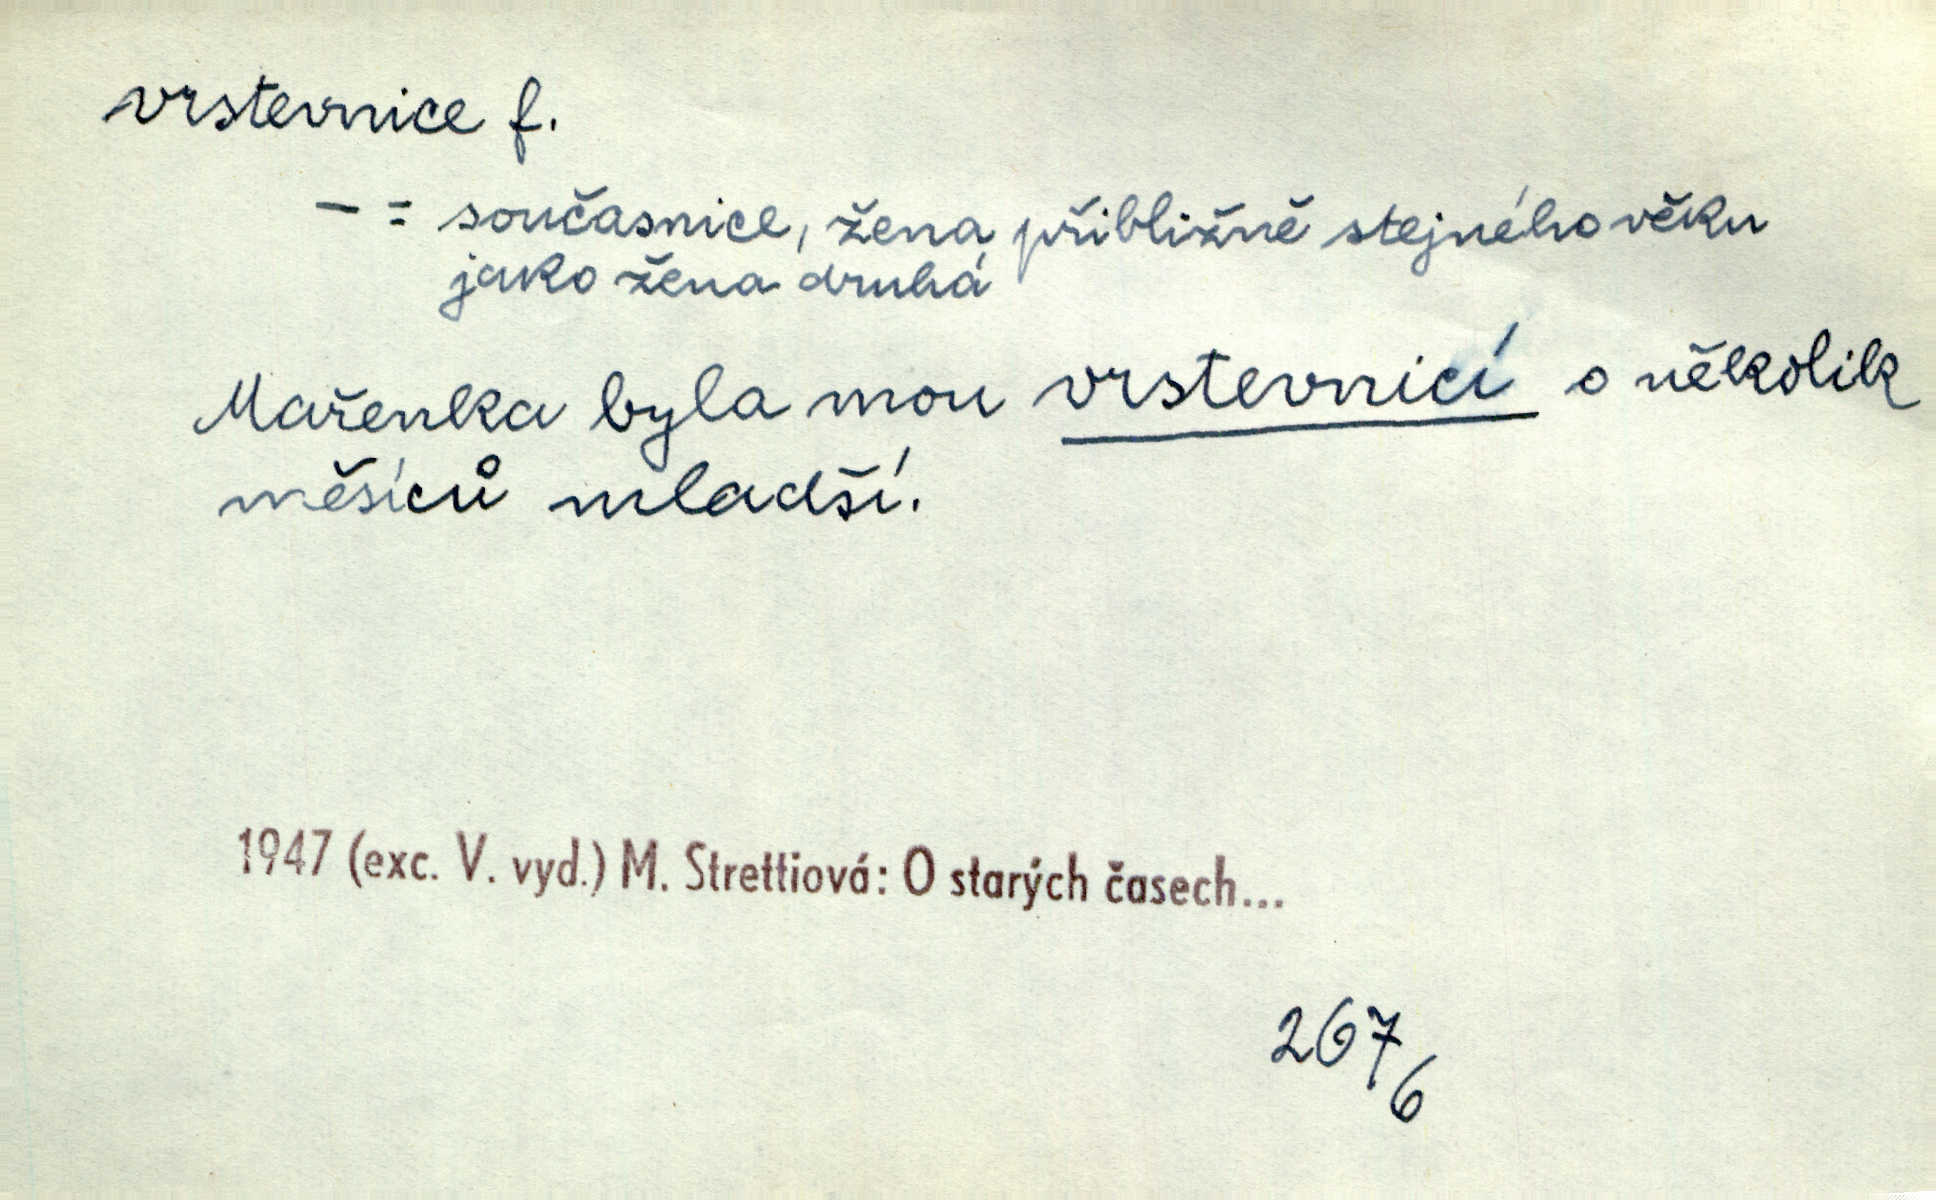 vrstevnice f.
– = současnice, žena přibližně stejného věku
jako žena druhá
Mařenka byla mou vrstevnicí o několik
měsíců mladší.
1947 (exc. V. vyd.) M. Strettiová: O starých časech...
267
6